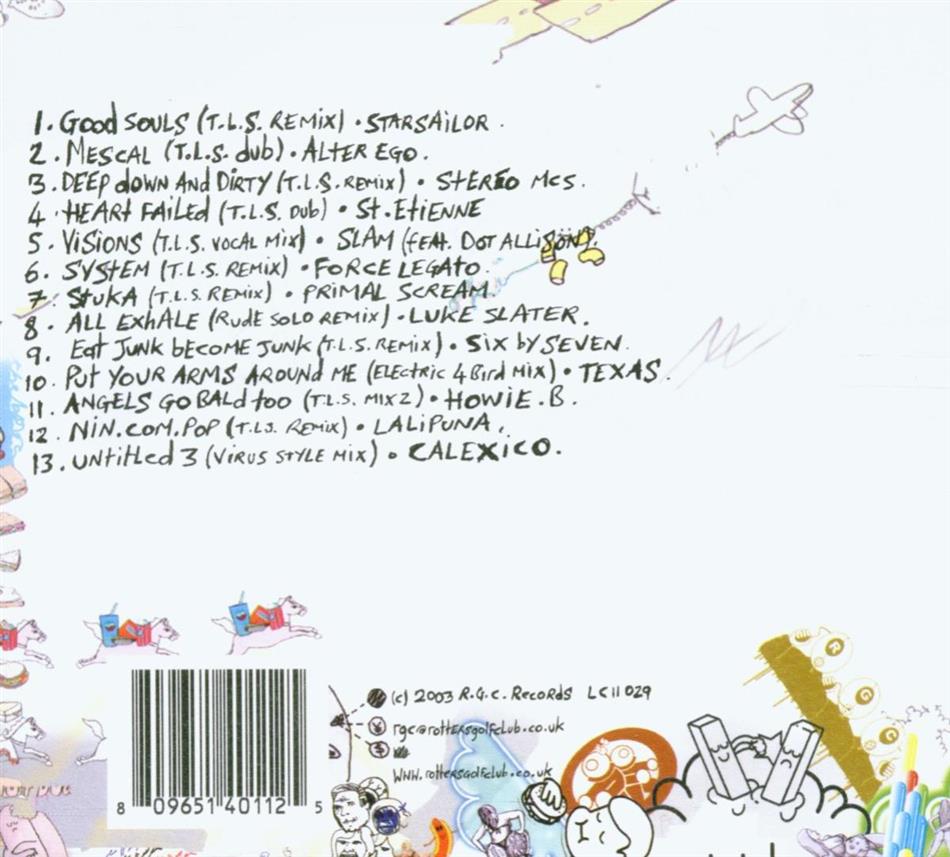 1. Good souls (T.L.S. REMix) • STARSAiLOR.
2. MESCAL (T.L.S. dub) • ALTER EGO.
3. DEEP down And DiRTy (T.L.S. REMix) • StEREO MCS.
4. HEARt FAiLEd (T.L.S. Dub) • St. EtiENNE
5. ViSiONS (T.L.S. VOCAL Mix) • SLAM (fEAt. Dot ALLiSON).
6. SYStEM (T.L.S. REMix) • FORCE LEGAtO.
7. StUKA (T.L.S. REMix) • PRiMAL SCREAM.
8. ALL ExhALE (RudE SOLO REMix) • LUKE SLATER.
9. Eat JUNK bECOME JUNK (T.L.S. REMix) • Six by SEVEN.
10. Put YOUR ARMS AROUNd ME (ELEctric 4 Bird Mix) • TEXAS.
11. ANGELS GO BALd too (T.L.S. Mix 2) • HOWiE.B.
12. NiN.COM.POP (T.L.S. REMix) • LALiPUNA.
13. UNtitLEd 3 (ViRUS STYLE Mix) • CALEXiCO.
(c) 2003 R.G.C. Records LC 11 029
rgc@rottersgolfclub.co.uk
www.rottersgolfclub.co.uk
8 09651 40112 5
R
G
C